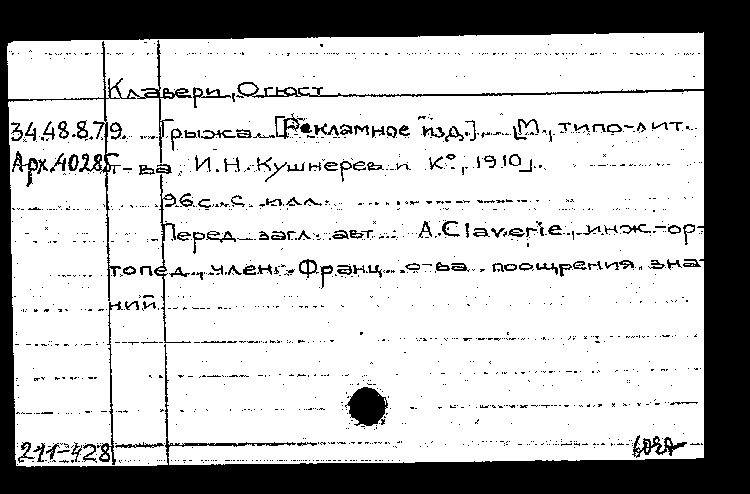 Клавери, Огюст
34.48.8.719. Грыжа. [Рекламное изд.]. [М., типо-лит.
Арх.40285 т-ва И.Н. Кушнерев и К°, 1910].
96 с. с илл.
Перед загл. авт.: A.Claverie, инж.-ор-
топед, член Франц. о-ва поощрения зна-
ний
211-428